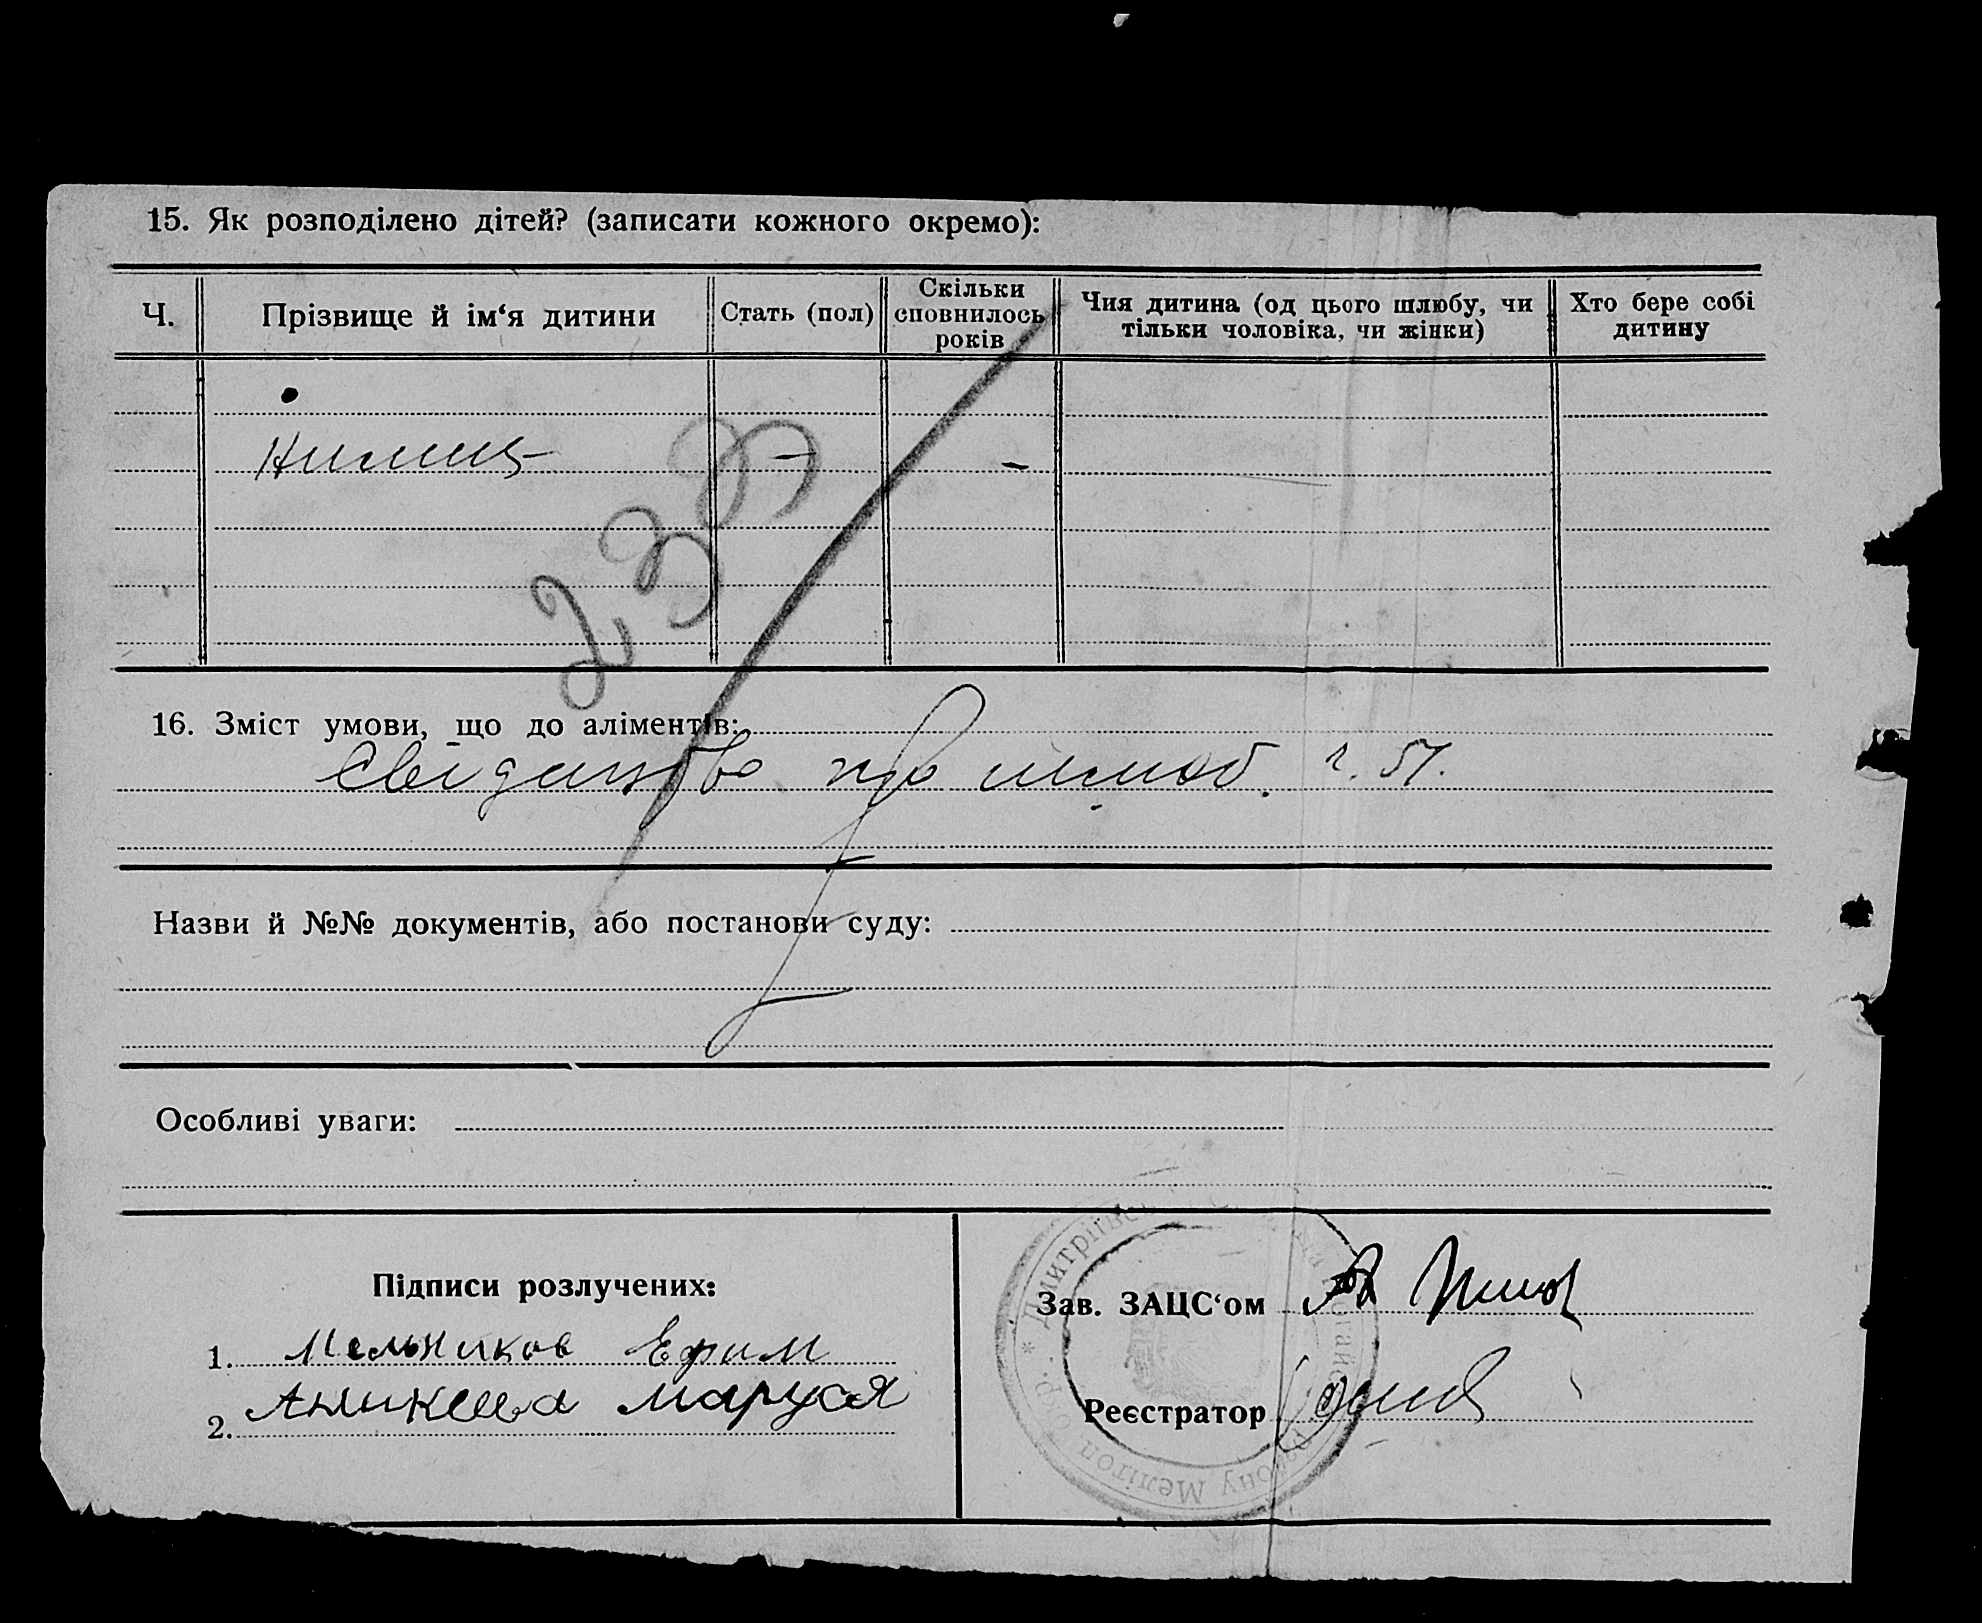 15. Як розподілено дітей? (записати кожного окремо):
Ч. Прізвище й ім‘я дитини Стать (пол) Скільки сповнилось років Чия дитина (од цього шлюбу, чи тільки чоловіка, чи жінки) Хто бере собі дитину
- -
233
16. Зміст умови, що до аліментів:
Свідицтво про шлюб. г. 51.
Назви й №№ документів, або постанови суду:
Особливі уваги:
Підписи розлучених:
1. Мельников Ефим
2. Аникеева Маруся
Зав. ЗАЦС‘ом
Реєстратор
* Дмитрівс району Меліtоп. Окр.